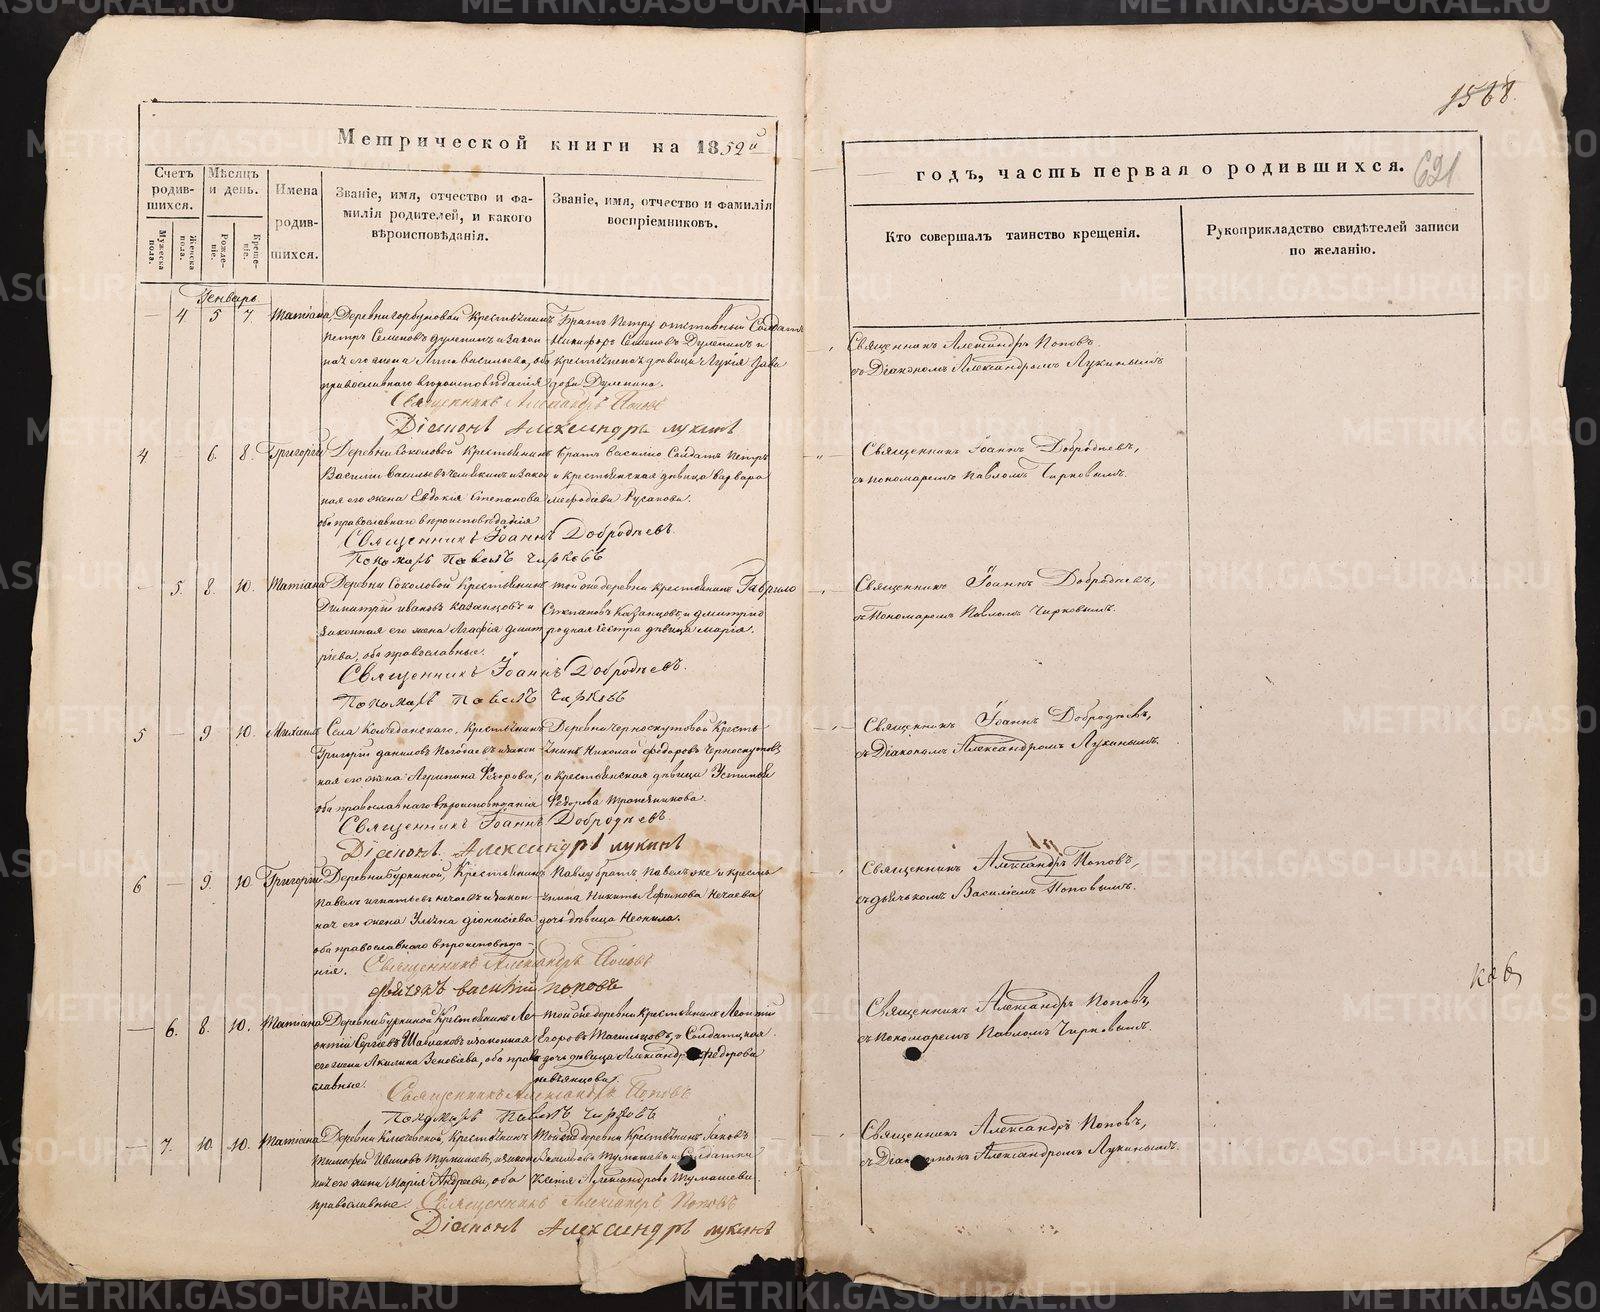 1568.
Метрической книги на 1852й
годъ, часть первая о родившихся.
621
Счетъ родив-шихся.
Мѣсяцъ и день.
Имена родив-шихся.
Званіе, имя, отчество и фа-
милія родителей, и какого
вѣроисповѣданія.
Званіе, имя, отчество и фамилія
воспріемниковъ.
Мужеска пола.
Женска пола.
Рожде-ніе.
Креще-ніе.
Кто совершалъ таинство крещенія.
Рукоприкладство свидѣтелей записи
по желанію.
Генварь
— 4 5 7 Татіана
Деревни Горбуновой Крестьянинъ
Петръ Семеновъ Дулепинъ и закон
ная его жена Анна Васильева, оба
православнаго вѣроисповѣданія
Братъ Петру отставный Солдатъ
Никифоръ Семеновъ Дулепинъ и
крестьянская дѣвица Лукія
Дулепина.
Священникъ Александръ Поповъ
Діаконъ Александръ Лукинъ
Священникъ Александръ Поповъ
съ Діакономъ Александромъ Лукинымъ
4 — 6. 8. Григорій
Деревни Соколовой Крестьянинъ
Василій Васильевъ и закон
ная его жена Евдокія Степанова
оба православнаго вѣроисповѣданія
Братъ Василію Солдатъ Петръ
и крестьянская дѣвица Варвара
Мефодіева Русакова.
Священникъ Іоаннъ Добродѣевъ.
Пономарь Павелъ Чирковъ
Священникъ Іоаннъ Добродѣевъ,
съ пономаремъ Павломъ Чирковымъ.
— 5. 8. 10. Татіана
Деревни Соколовой Крестьянинъ
Димитрій Ивановъ Казанцовъ и
законная его жена Агафія Дмит
ріева, оба православные.
Той же деревни крестьянинъ Гаврило
Степановъ Казанцовъ, и Дмитрію
родная сестра дѣвица Марія.
Священникъ Іоаннъ Добродѣевъ.
Пономарь Павелъ Чирковъ
Священникъ Іоаннъ Добродѣевъ,
съ Пономаремъ Павломъ Чирковымъ.
5 — 9 10. Михаилъ
Села Колчеданскаго, Крестьянинъ
Григорій Даниловъ Погодаевъ и закон
ная его жена Агрипина Федорова,
оба православнаго вѣроисповѣданія
Деревни Черноскутовой Кресть
янинъ Николай Федоровъ Черноскутовъ
и крестьянская дѣвица Устинья
Федорова Трапезникова.
Священникъ Іоаннъ Добродѣевъ.
Діаконъ Александръ Лукинъ
Священникъ Іоаннъ Добродѣевъ,
съ Діакономъ Александромъ Лукинымъ.
6 — 9. 10 Григорій
Деревни Буркиной, Крестьянинъ
Павелъ Игнатьевъ Нечаевъ и закон
ная его жена Ульяна Діонисіева
оба православнаго вѣроисповѣда
нія.
Павлу братъ Павелъ же и кресть
янина Никиты Ефимова Нечаева
дочь дѣвица Неонила.
Священникъ Александръ Поповъ
Дьячекъ Василій Поповъ
Священникъ Александръ Поповъ,
съ дьячькомъ Василіемъ Поповымъ.
— 6. 8. 10. Татіана
Деревни Буркиной Крестьянинъ Ле
онтій Сергѣевъ и законная
его жена Акилина Зеновіева, оба право
славные.
Той же деревни Крестьянинъ Леонтій
Егоровъ и Солдатская
дочь дѣвица Александра Федорова
Невьянцова.
Священникъ Александръ Поповъ
Пономарь Павелъ Чирковъ
Священникъ Александръ Поповъ,
съ пономаремъ Павломъ Чирковымъ.
— 7. 10. 10. Татіана
Деревни Ключевской, Крестьянинъ
Тимофей Ивановъ Тумашевъ, и закон
ная его жена Марія Андреева, оба
православные
Той же деревни Крестьянинъ Іаковъ
Тумашевъ и Солдатка
Ксенія Александрова Тумашева.
Священникъ Александръ Поповъ
Діаконъ Александръ Лукинъ
Священникъ Александръ Поповъ,
съ Діакономъ Александромъ Лукинымъ.
METRIKI.GASO-URAL.RU